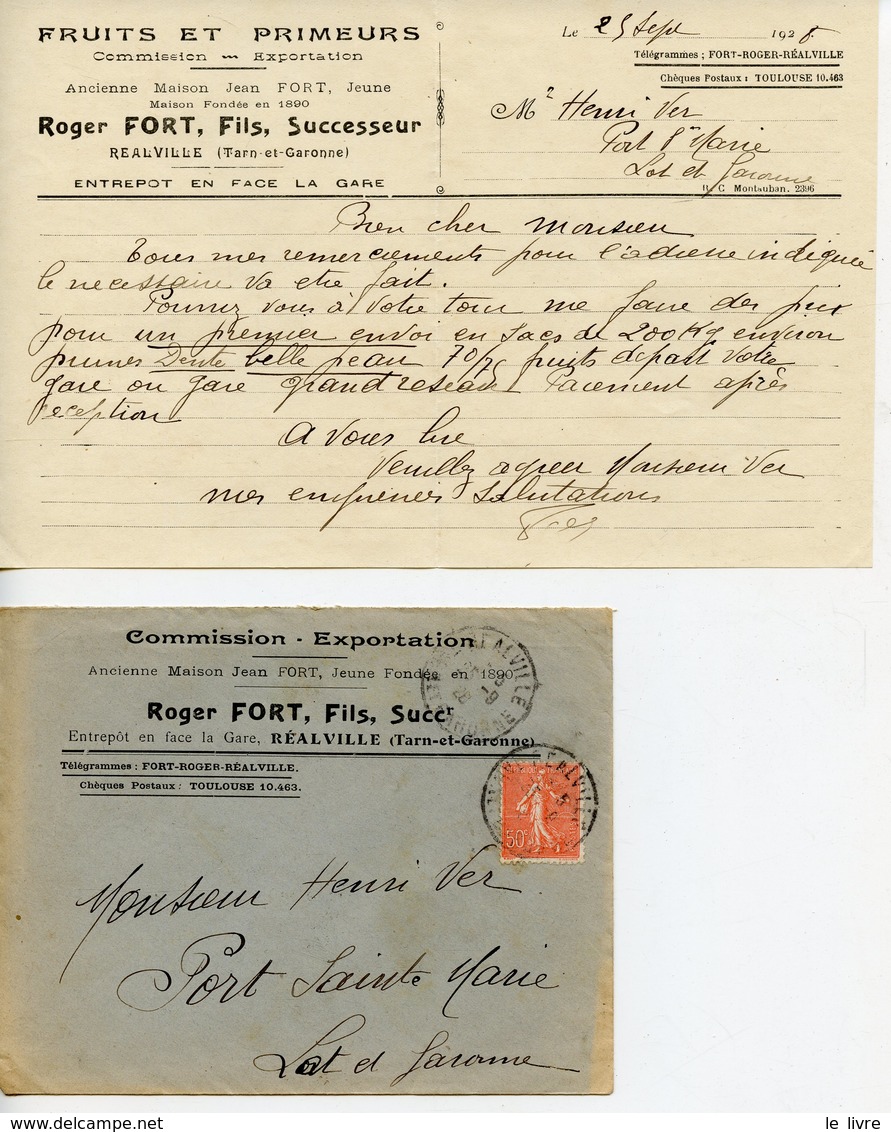 FRUITS ET PRIMEURS
Commission — Exportation
Ancienne Maison Jean FORT, Jeune
Maison Fondée en 1890
Roger FORT, Fils, Successeur
REALVILLE (Tarn-et-Garonne)
ENTREPOT EN FACE LA GARE
Le 25 Sept 1928
Télégrammes : FORT-ROGER-RÉALVILLE
Chèques Postaux : TOULOUSE 10.463
Mr Henri Ver
Port Ste Marie
Lot et Garonne
R. C Montauban. 2396
Bien cher Monsieur
Tous mes remerciements pour l'adresse indiquée
le necessaire va etre fait.
Pouvez vous à votre tour me faire des prix
pour un premier envoi en sacs de 200 Kg environ
prunes Dente belle peau 70/75 fruits départ votre
gare ou gare grand reseau Paiement après
réception
A vous lire
Veuillez agreer Monsieur Ver
mes empressées Salutations
Commission - Exportation
Ancienne Maison Jean FORT, Jeune Fondée en 1890
Roger FORT, Fils, Succr
Entrepôt en face la Gare, RÉALVILLE (Tarn-et-Garonne)
Télégrammes : FORT-ROGER-RÉALVILLE.
Chèques Postaux : TOULOUSE 10.463.
REALVILLE
50c
Monsieur Henri Ver
Port Sainte Marie
Lot et Garonne
le livre